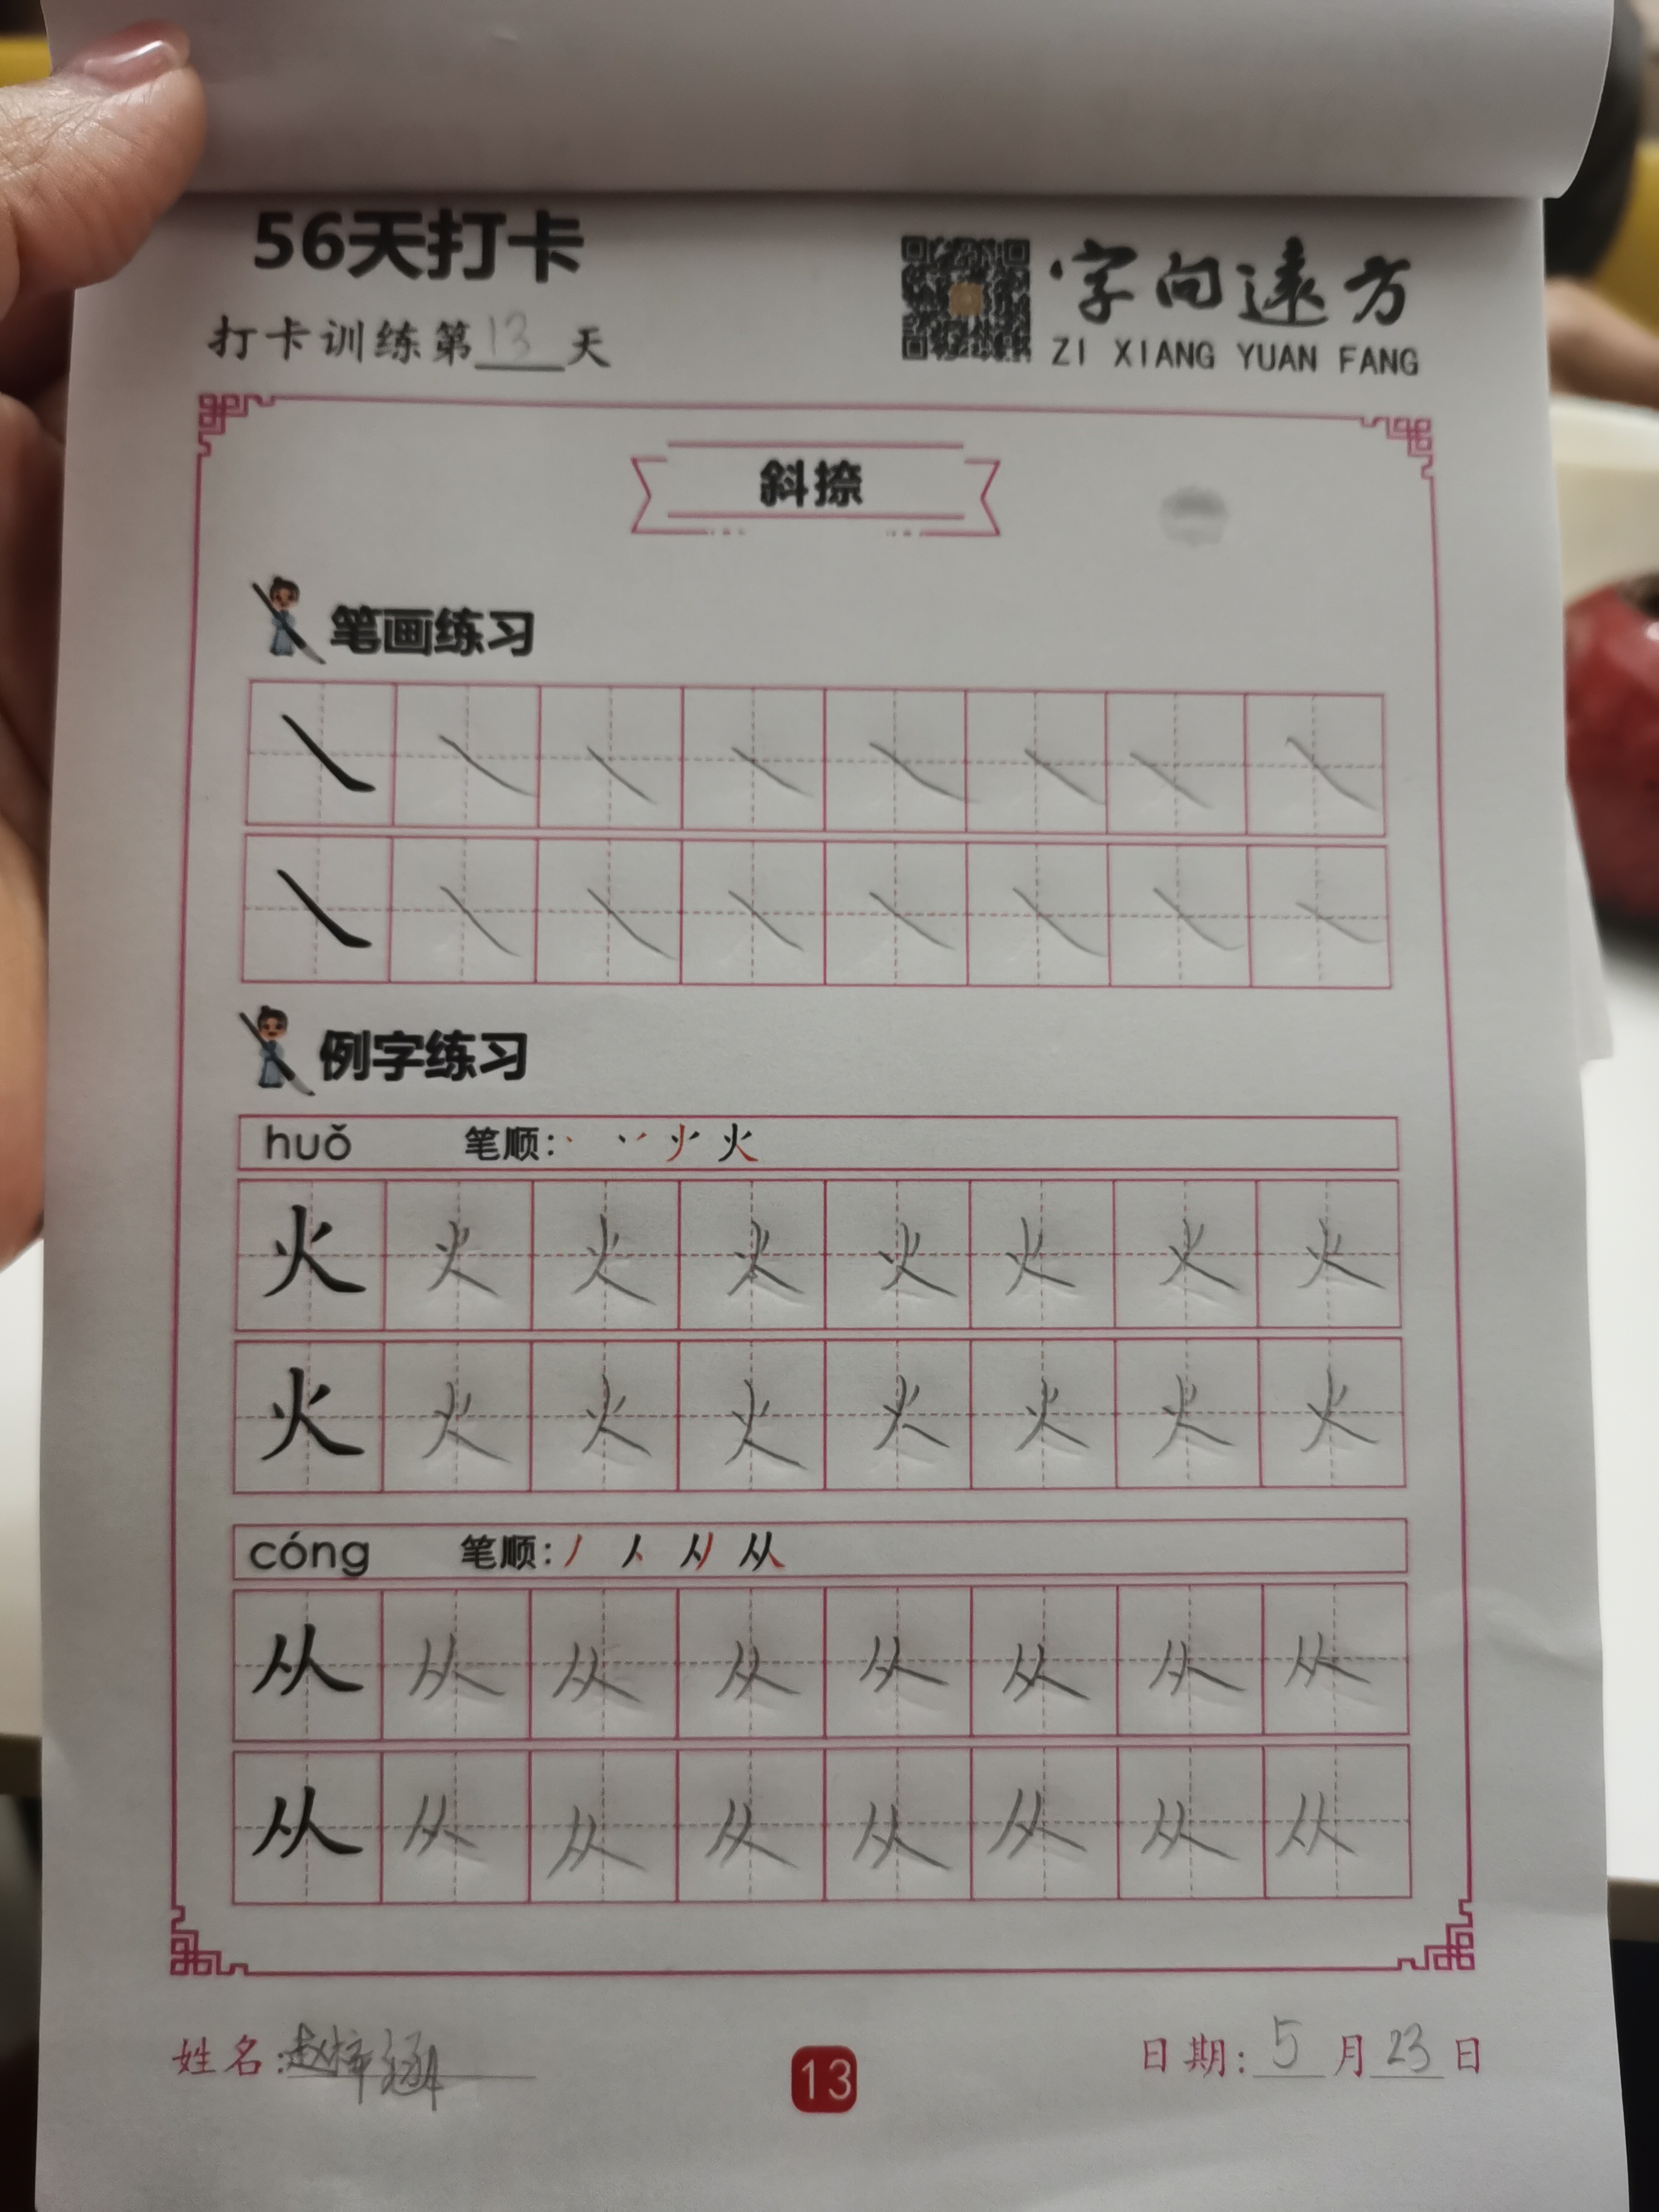 56天打卡
打卡训练第13天
字向遠方
ZI XIANG YUAN FANG
斜捺
笔画练习
㇏ ㇏ ㇏ ㇏ ㇏ ㇏ ㇏ ㇏
㇏ ㇏ ㇏ ㇏ ㇏ ㇏ ㇏ ㇏
例字练习
huǒ 笔顺: 火
火 火 火 火 火 火 火 火
火 火 火 火 火 火 火 火
cóng 笔顺: 丿 人 从
从 从 从 从 从 从 从 从
从 从 从 从 从 从 从 从
姓名:赵梓涵
13
日期:5月23日